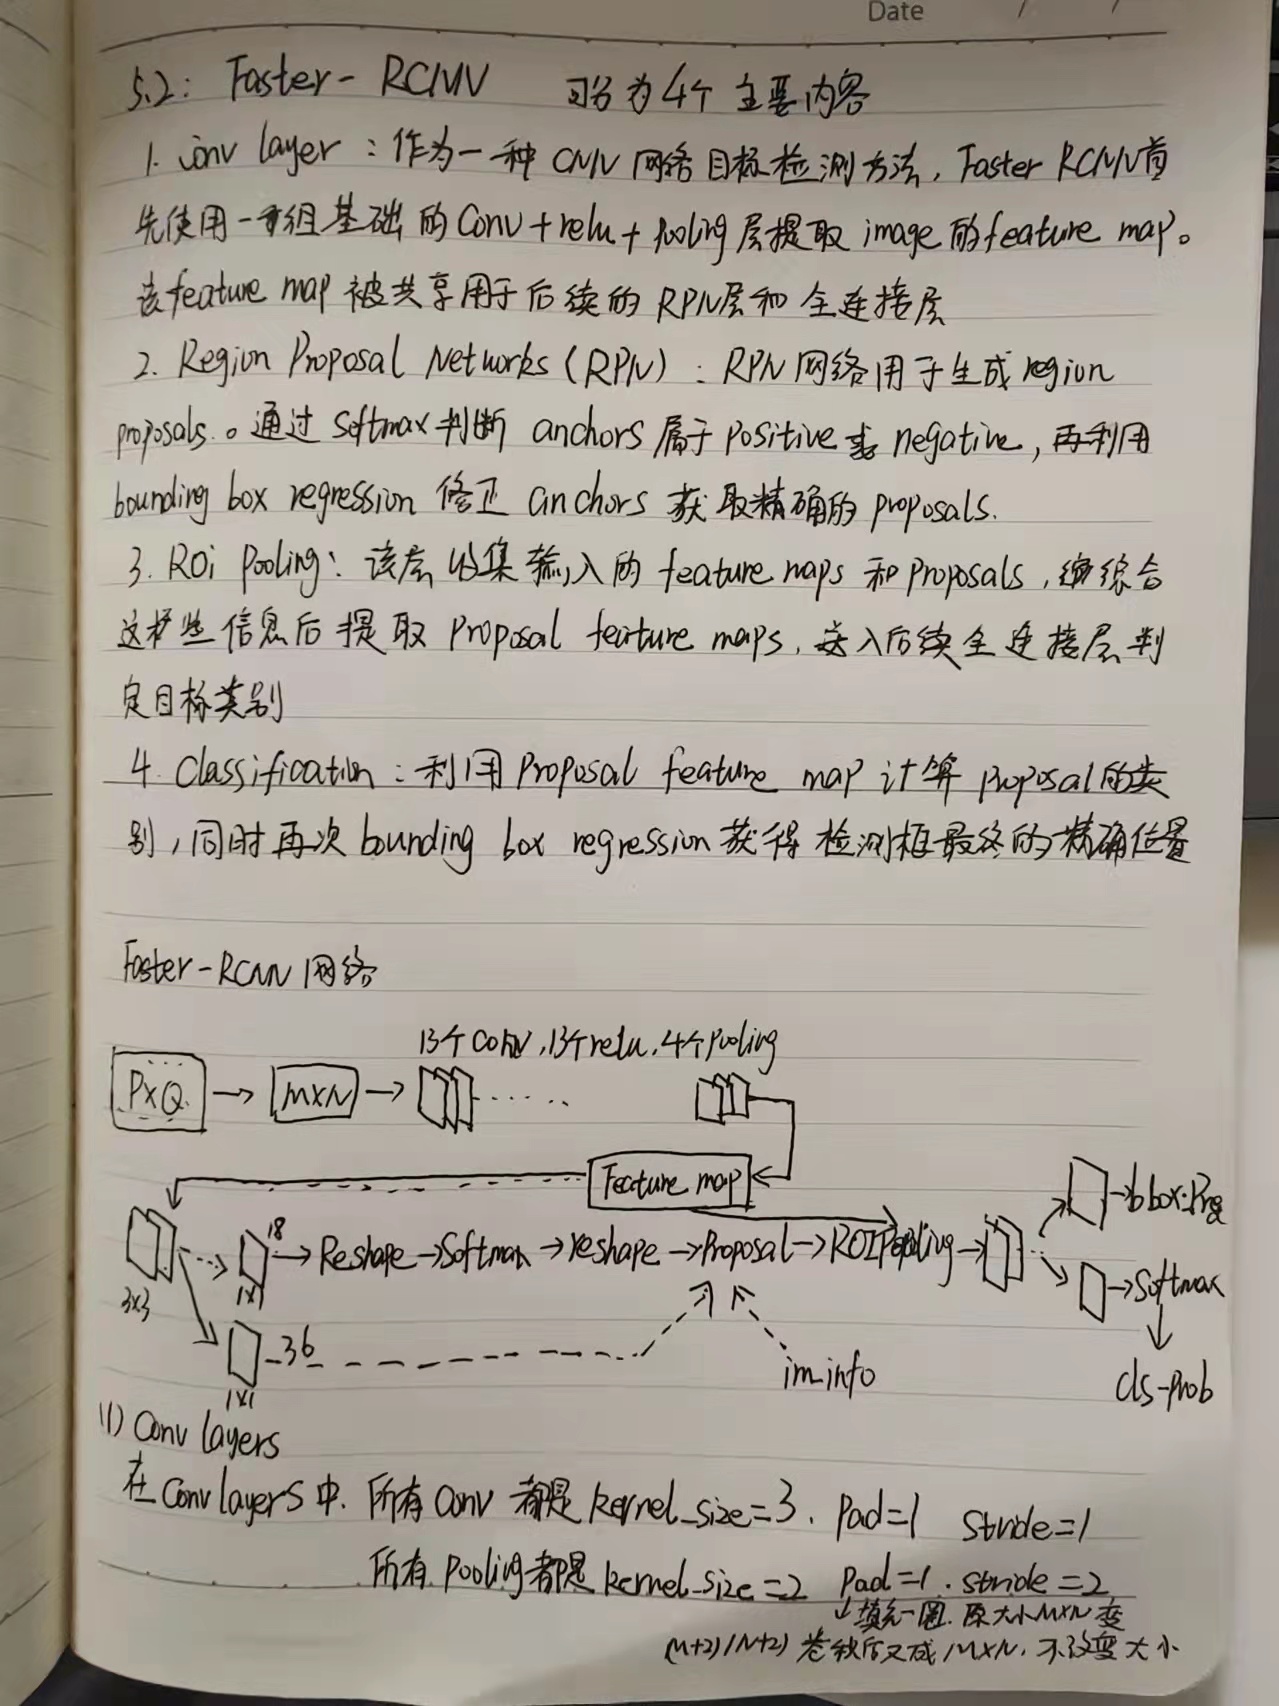 Date / /
5.2: Faster-RCNN 可分为4个主要内容
1. Conv layer：作为一种CNN网络目标检测方法，Faster RCNN首
先使用一组基础的Conv+relu+pooling层提取image的feature map。
该feature map被共享用于后续的RPN层和全连接层
2. Region Proposal Networks（RPN）：RPN网络用于生成region
proposals。通过softmax判断anchors属于positive或negative，再利用
bounding box regression修正anchors获取精确的proposals.
3. ROi Pooling：该层收集输入的feature maps和proposals，综合
这些信息后提取proposal feature maps，送入后续全连接层判
定目标类别
4. Classification：利用Proposal feature map计算proposal的类
别，同时再次bounding box regression获得检测框最终的精确位置
Faster-RCNN网络
13个conv，13个relu，4个pooling
PxQ MxN
Feature map
bbox-Pre
18
Reshape Softmax reshape Proposal ROIPooling
Softmax
3x3 1x1
36
im-info
cls-prob
1x1
(1) Conv layers
在Conv layers中．所有conv都是kernel_size=3．pad=1 stride=1
所有pooling都是kernel_size=2 pad=1．stride=2
填充一圈．原大小MxN变
(M+2)(N+2) 卷积后又成MxN．不改变大小